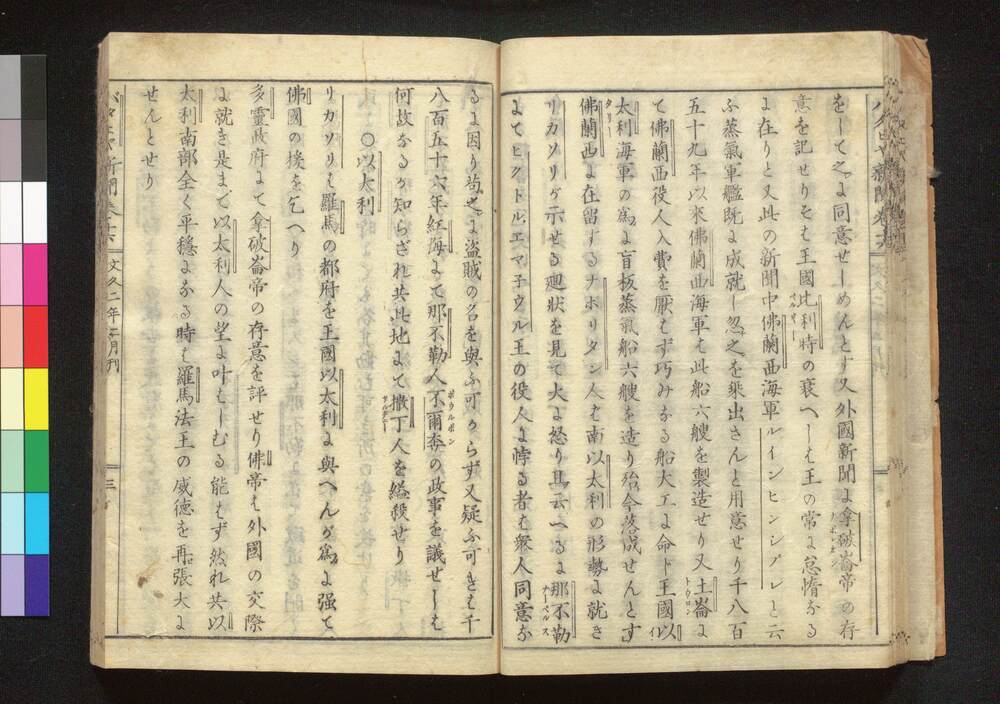 をして之に同意せしめんとす又外國新聞に拿破崙帝の存
意を記せりそは王國比利時の衰へしは王の常に怠惰なる
に在りと又此の新聞中佛蘭西海軍ルインヒンシブレと云
ふ蒸氣軍艦既に成就し忽之を乘出さんと用意せり千八百
五十九年以來佛蘭西海軍は此船六艘を製造せり又土崙に
て佛蘭西役人入費を厭はず巧みなる船大工に命ド王國以
太利海軍の爲に盲板蒸氣船六艘を造り殆今落成せんとす
佛蘭西に在留するナポリタン人は南以太利の形勢に就き
リカソリが示せる廻狀を見て大に怒り其云へるは那不勒
よてヒクトル、エマ子ウル王の役人に悖る者は衆人同意な
るに因り苟之に盜賊の名を與ふ可からず又疑ふ可きは千
八百五十六年紅海にて那不勒人不爾奔の政事を議せしは
何故なるか知らざれ共此地にて撒丁人を縊殺せり
○以太利
リカソリは羅馬の都府を王國以太利に與へんが爲に强て
佛國の援を乞へり
多靈政府にて拿破崙帝の存意を評せり佛帝は外國の交際
に就き是まで以太利人の望に叶はしむる能はず然れ共以
太利南部全く平穩なる時は羅馬法王の威德を再張大に
せんとせり
バタヒヤ新聞卷十六 文久二年二月刊 三